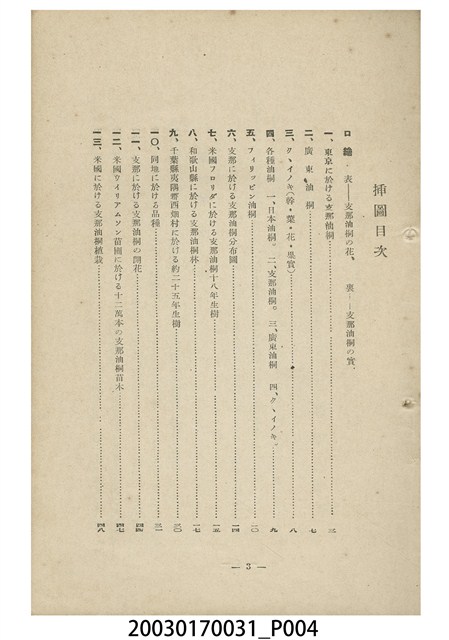 挿圖目次
口繪 表――支那油桐の花、 裏――支那油桐の實、
一、東京に於ける支那油桐……三
二、廣東油桐……七
三、クヽイノキ(幹・葉・花・果實)……八
四、各種油桐 一、日本油桐。 二、支那油桐。 三、廣東油桐 四、クヽイノキ。……九
五、フィリッピン油桐……一〇
六、支那に於ける支那油桐分布圖……一四
七、米國フロリダに於ける支那油桐十八年生樹……一五
八、和歌山縣に於ける支那油桐林……一七
九、千葉縣夷隅郡西畑村に於ける約二十五年生樹……三〇
一〇、同地に於ける品種……三一
一一、支那に於ける支那油桐の開花……四四
一二、米國ウイリアムソン苗圃に於ける十二萬本の支那油桐苗木……四七
一三、米國に於ける支那油桐植栽……四八
— 3 —
20030170031_P004